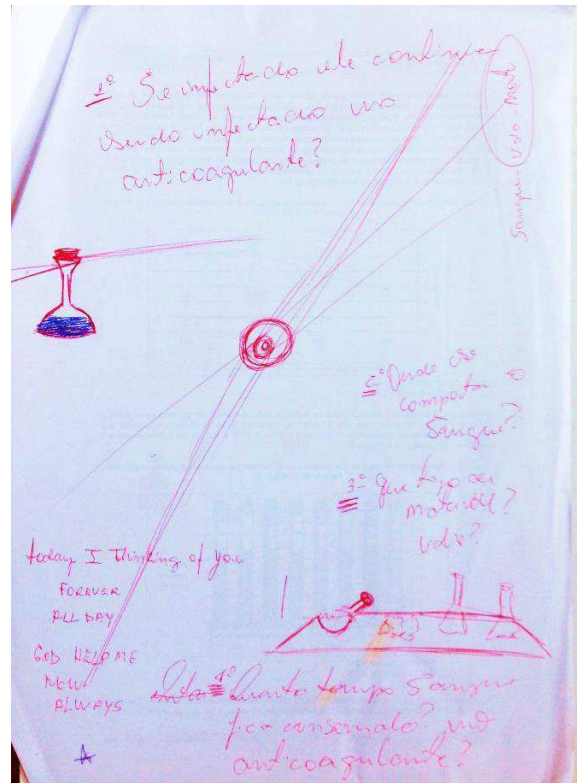 1º Se infectado ele continua
sendo infectado no
anticoagulante?
Sangue - Vida - Morte
2º Onde se
comporta o
Sangue?
3º Que tipo de
material?
vidro?
today I Thinking of you
FOREVER
ALL DAY
GOD HELP ME
NEW
ALWAYS
A
4º Quanto tempo Sangue
fica conservado no
anticoagulante?